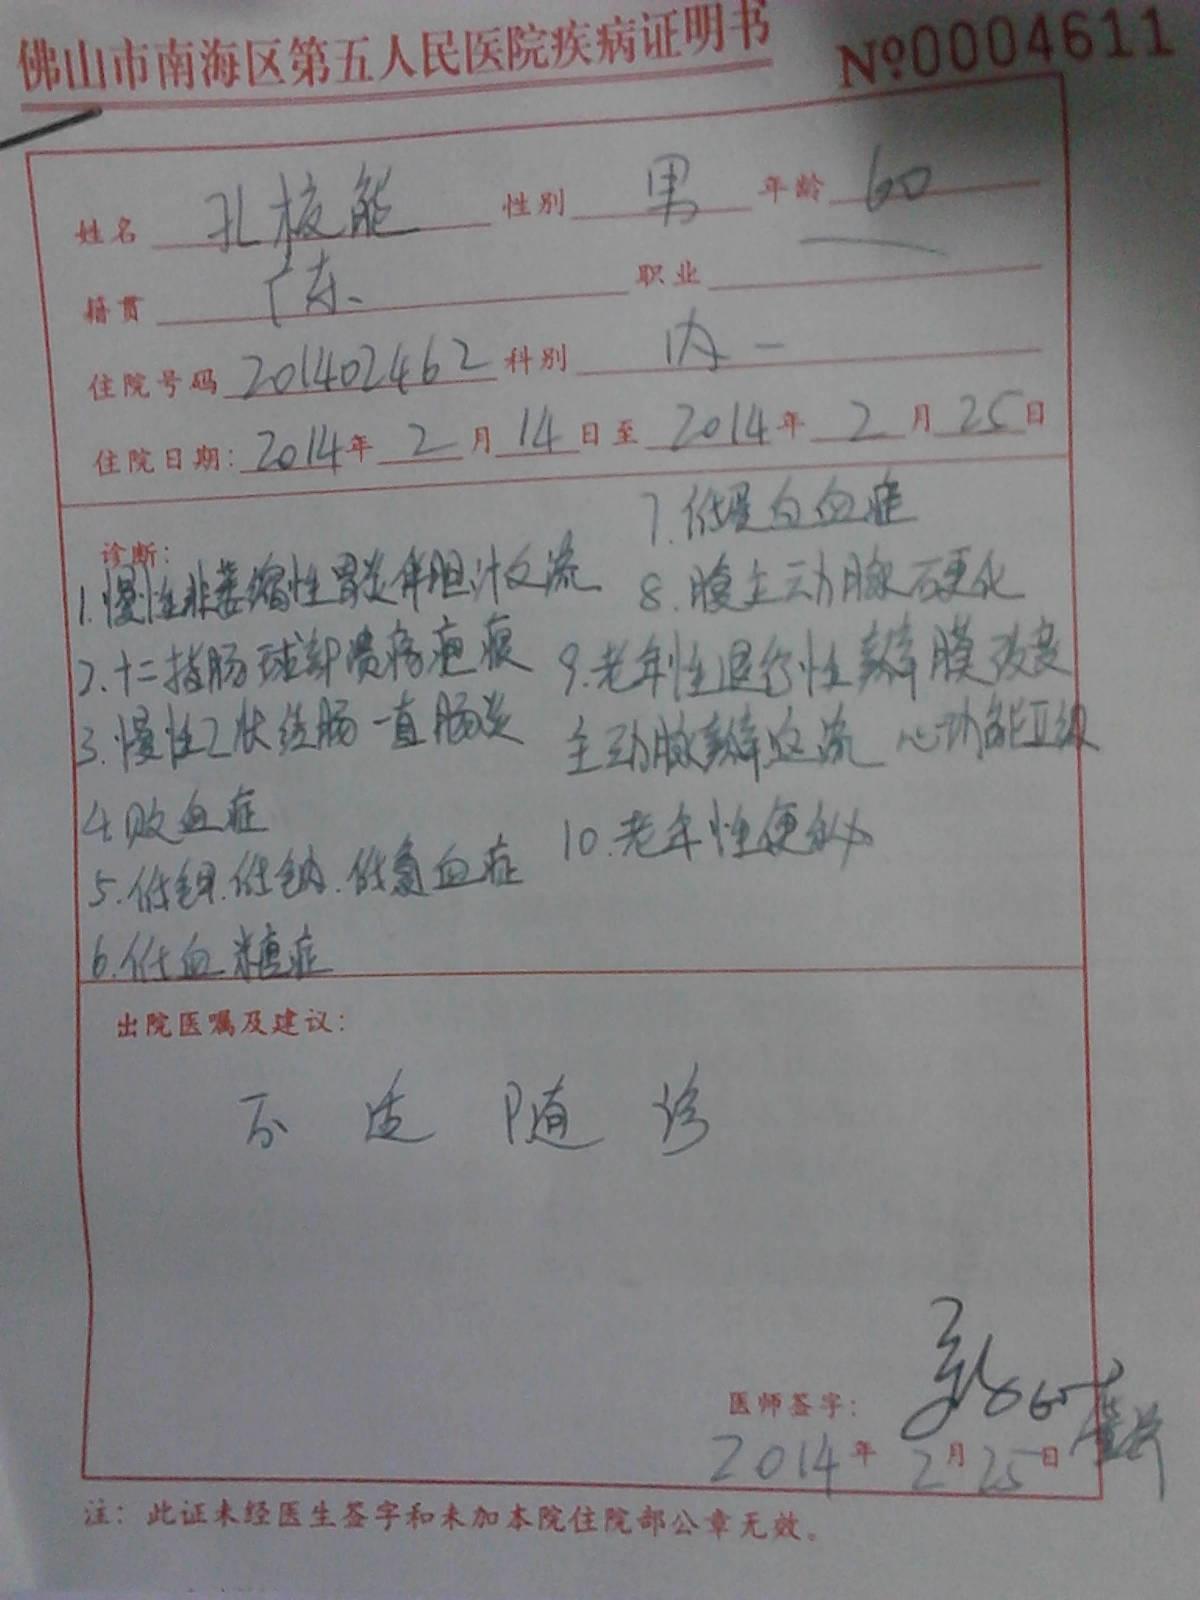 佛山市南海区第五人民医院疾病证明书 №0004611
姓名 孔棱能 性别 男 年龄 60
籍贯 广东 职业
住院号码 201402462 科别 内一
住院日期: 2014年 2 月 14 日至 2014年 2 月 25日
诊断:
1.慢性非萎缩性胃炎伴胆汁反流
2.十二指肠球部溃疡疤痕
3.慢性乙状结肠-直肠炎
4.败血症
5.低钾.低钠.低氯血症
6.低血糖症
7.低蛋白血症
8.腹主动脉硬化
9.老年性退行性瓣膜改变
主动脉瓣返流 心功能Ⅱ级
10.老年性便秘
出院医嘱及建议:
不适随诊
医师签字:
2014年 2月25日
注：此证未经医生签字和未加本院住院部公章无效。